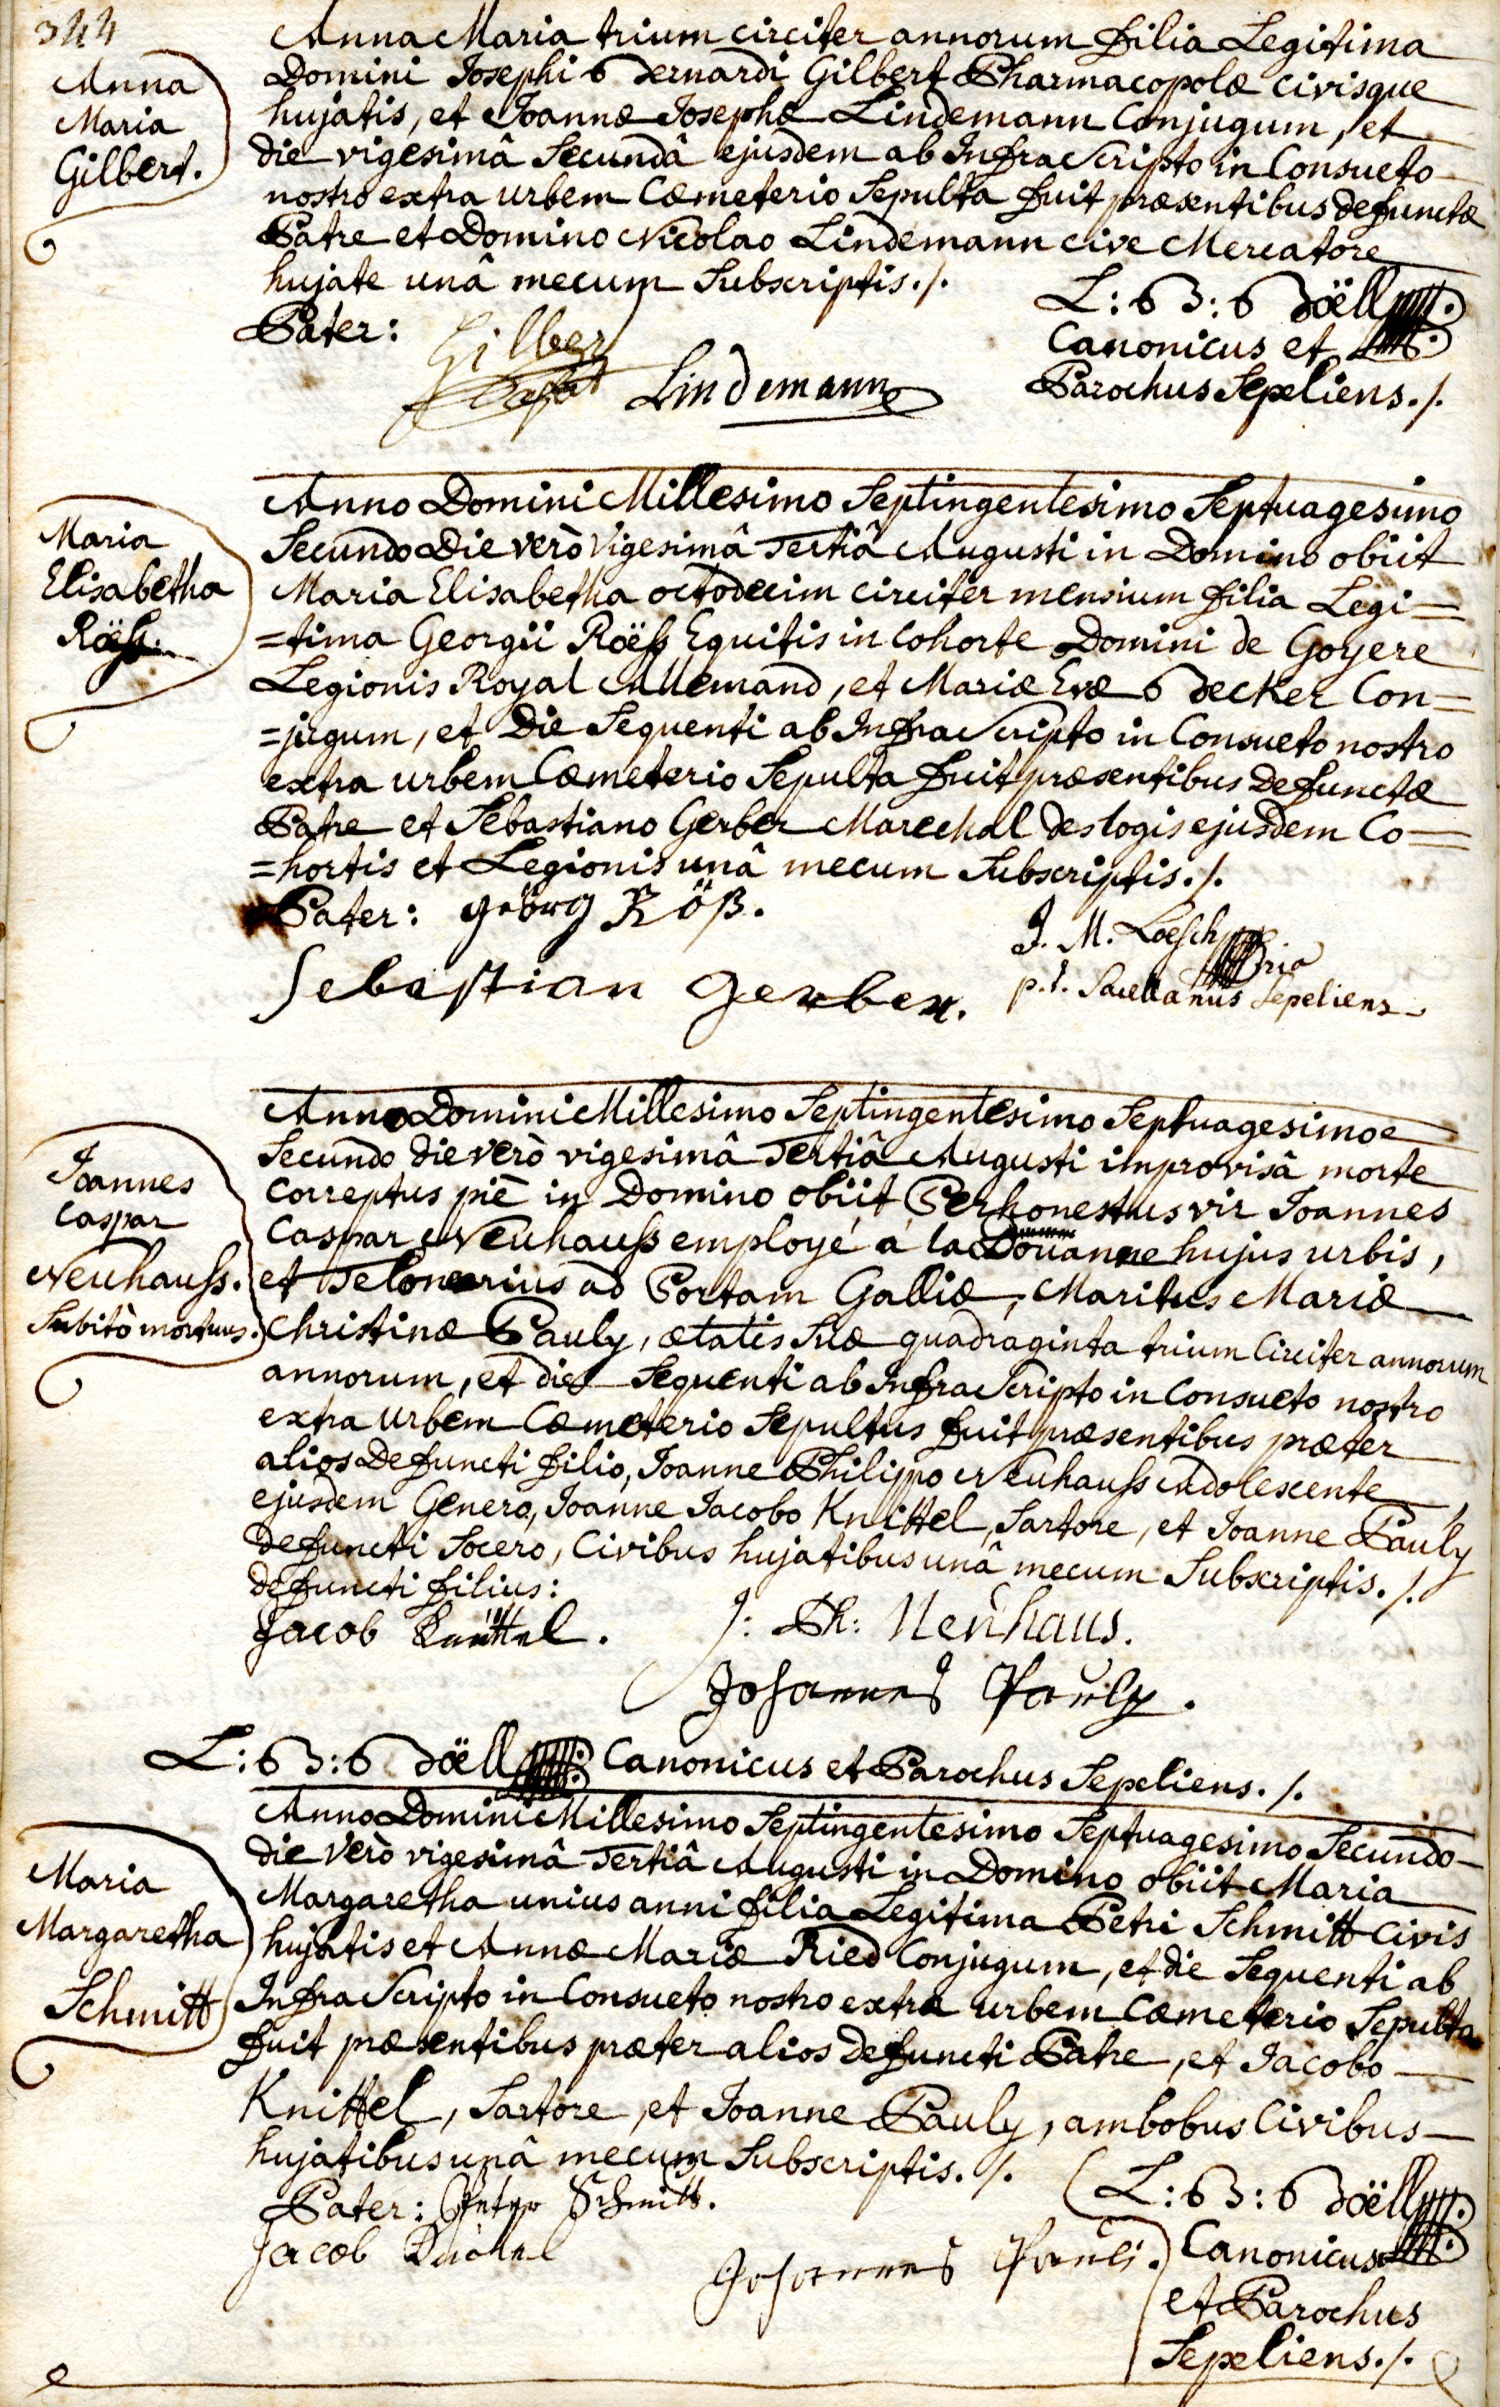 344
Anna
Maria
Gilbert.
Anna Maria trium circiter annorum filia Legitima
Domini Josephi Bernardi Gilbert Pharmacopolæ civisque
hujatis, et Joannæ Josephæ Lindemann Conjugum, et
die vigesimâ Secundâ ejusdem ab Infra Scripto in Consueto
nostro extra urbem Cœmeterio Sepulta fuit præsentibus defunctæ
Patre et Domino Nicolao Lindemann cive Mercatore
hujate unâ mecum Subscriptis ./.
Pater: Gilbert
Lindemann
L: B: Boëll
Canonicus et
Parochus Sepeliens ./.
Maria
Elisabetha
Röeß.
Anno Domini Millesimo Septingentesimo Septuagesimo
Secundo Die verò Vigesimâ Tertiâ Augusti in Domino obiit
Maria Elisabetha octodecim circiter mensium filia Legi=
=tima Georgii Röeß Equitis in Cohorte Domini de Goyere
Legionis Royal Allemand, et Mariæ Evæ Becker Con=
=jugum, et Die Sequenti ab Infra Scripto in Consueto nostro
extra urbem Cœmeterio Sepulta fuit præsentibus Defunctæ
Patre et Sebastiano Gerber Marechal des logis ejusdem Co=
=hortis et Legionis unâ mecum Subscriptis ./.
Pater: Geörg Röß.
Sebastian Gerber.
J. M. Loesch
p.t. Sacellanus Sepeliens
Joannes
Caspar
Neuhauß.
Subitò mortuus.
Anno Domini Millesimo Septingentesimo Septuagesimo
Secundo die verò vigesimâ Tertiâ Augusti improvisâ morte
correptus piè in Domino obiit Perhonestus vir Joannes
Caspar Neuhauß employé á la Douanne hujus urbis,
et Telonearius ad Portam Galliæ, Maritus Mariæ
Christinæ Pauly, ætatis Suæ quadraginta trium Circiter annorum
annorum, et die Sequenti ab Infra Scripto in Consueto nostro
extra urbem Cœmeterio Sepultus fuit præsentibus præter
alios Defuncti filio, Joanne Philippo Neuhauß Adolescente,
ejusdem Genero, Joanne Jacobo Knittel, Sartore, et Joanne Pauly
defuncti Socero, Civibus hujatibus unâ mecum Subscriptis ./.
defuncti filius:
J: Ph: Neuhaus.
Jacob Knittel.
Johannes Pauly.
L: B: Boëll Canonicus et Parochus Sepeliens ./.
Maria
Margaretha
Schmitt
Anno Domini Millesimo Septingentesimo Septuagesimo Secundo
die Verò vigesimâ Tertiâ Augusti in Domino obiit Maria
Margaretha unius anni filia Legitima Petri Schmitt Civis
hujatis et Annæ Mariæ Ried Conjugum, et die Sequenti ab
Infra Scripto in Consueto nostro extra urbem Cœmeterio Sepulta
fuit præsentibus præter alios defuncti Patre, et Jacobo
Knittel, Sartore, et Joanne Pauly, ambobus Civibus
hujatibus unâ mecum Subscriptis ./.
Pater: Peter Schmitt.
Jacob Knittel
Johannes Pauli.
L: B: Boëll
Canonicus
et Parochus
Sepeliens ./.